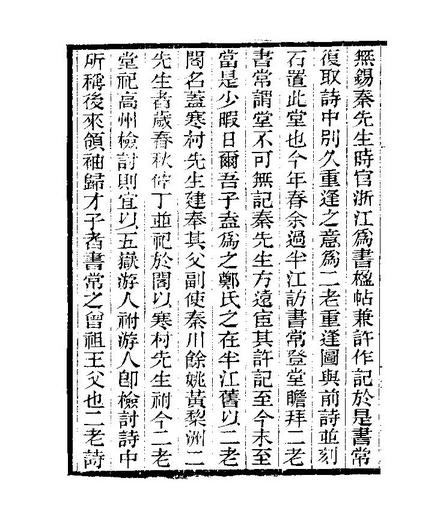 無錫秦先生時官浙江爲書楹帖兼許作記於是書常
復取詩中別久重逢之意爲二老重逢圖與前詩並刻
石置此堂也今年春余過半江訪書常登堂瞻拜二老
書常謂堂不可無記秦先生方遠宦其許記至今未至
當是少暇日爾吾子盍爲之鄭氏之在半江舊以二老
閣名蓋寒村先生建奉其父副使秦川餘姚黃黎洲二
先生者歲春秋仲丁並祀於閣以寒村先生祔今二老
堂祀高州檢討則宜以五嶽游人祔游人卽檢討詩中
所稱後來領袖歸才子者書常之曾祖王父也二老詩